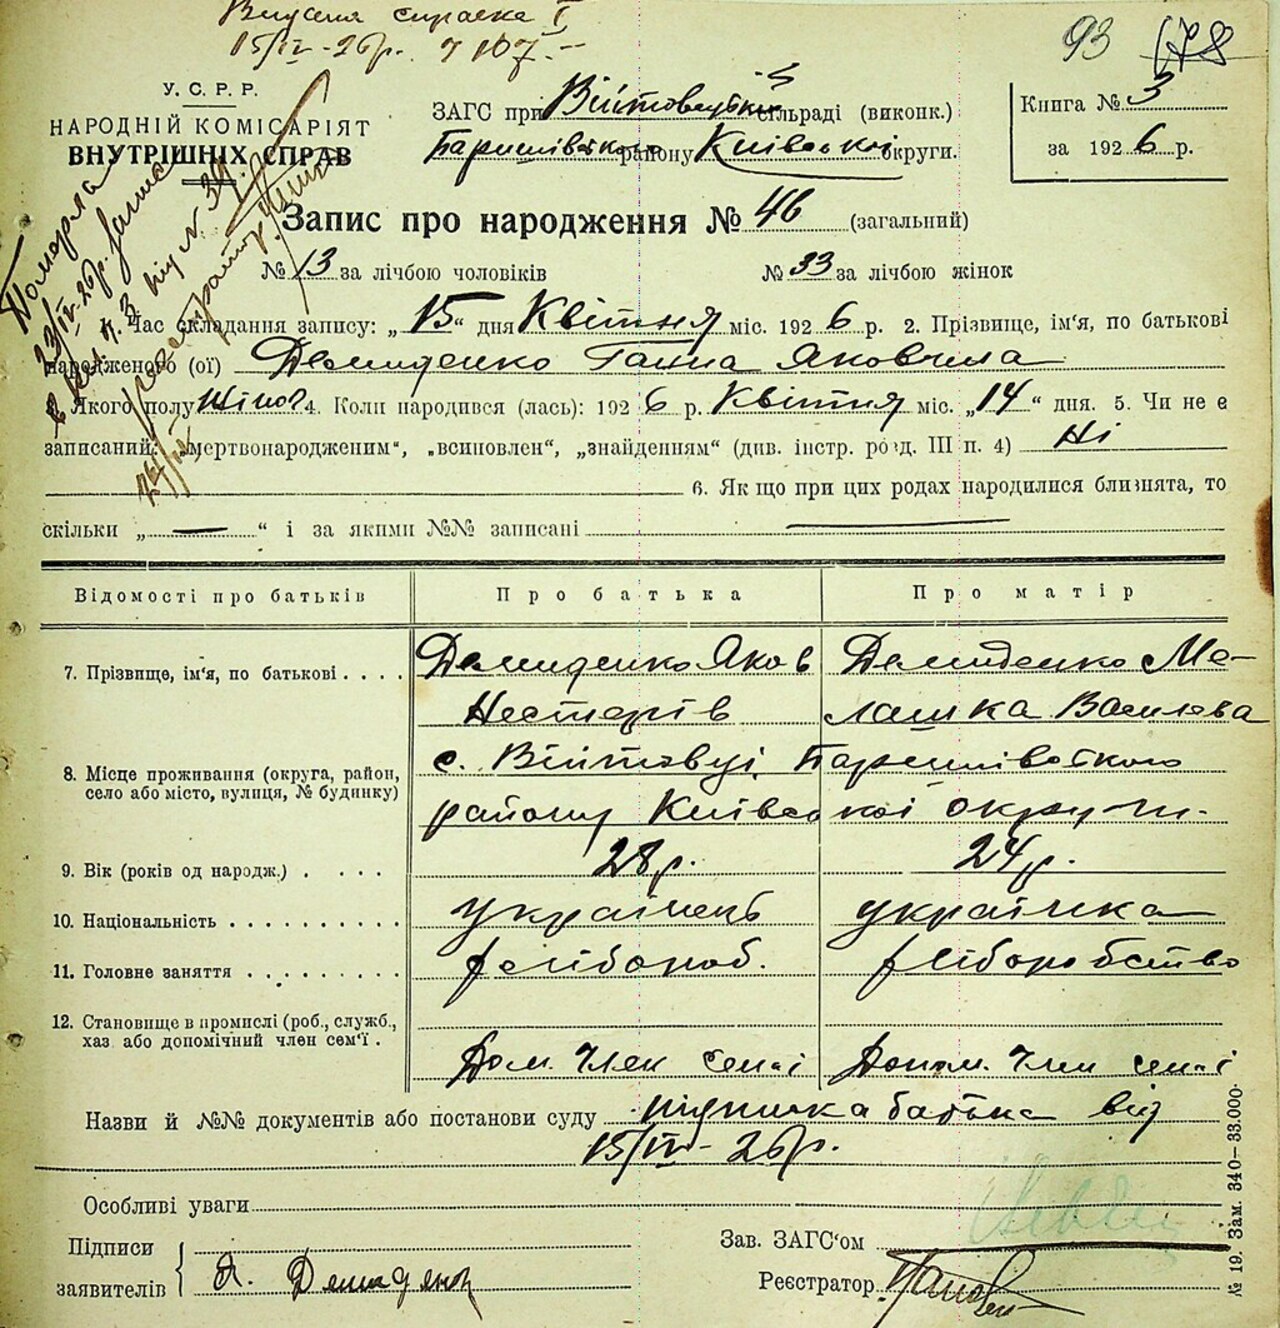 Видана справка
15/IV-26р. 7 107
93 178
У. С. Р. Р.
НАРОДНІЙ КОМІСАРІЯТ
ВНУТРІШНІХ СПРАВ
ЗАГС при Війтовецькій сільраді (виконк.)
Баришівського району Київської округи.
Книга № 3
за 1926 р.
Померла
23/IV-26р. запис
в кн. ч. 3 під № 39
Запис про народження № 46 (загальний)
№ 13 за лічбою чоловіків № 33 за лічбою жінок
1. Час складання запису: „15“ дня Квітня міс. 1926 р. 2. Прізвище, ім'я, по батькові
народженого (ої) Демиденко Ганна Яковлівна
3. Якого полу жіноч 4. Коли народився (лась): 1926 р. Квітня міс. „14“ дня. 5. Чи не є
записаний: „мертвонародженим“, „всиновлен“, „знайденням“ (див. інстр. розд. III п. 4) Ні
6. Якщо при цих родах народилися близнята, то
скільки „—“ і за якими №№ записані —
Відомості про батьків Про батька Про матір
7. Прізвище, ім'я, по батькові . . . . Демиденко Яков Демиденко Ме-
Нестерів лашка Василева
8. Місце проживання (округа, район, село або місто, вулиця, № будинку) с. Війтовці Баришівського
району Київської округи.
9. Вік (років од народж.) . . . . 28р. 24р.
10. Національність . . . . . . . . . . українець українка
11. Головне заняття . . . . . . . . . хлібороб. хліборобство
12. Становище в промислі (роб., службл., хаз. або допомічний член сем'ї .
Дом. член семі Допом. член семі
Назви й №№ документів або постанови суду підписка батька від
15/IV-26р.
Особливі уваги
Підписи
заявителів
Я. Демиденко
Зав. ЗАГС'ом
Реєстратор
№ 19. Зам. 340—33.000.